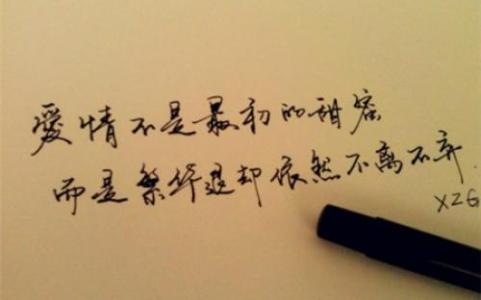 愛情不是最初的甜密
而是繁华退却依然不离不弃.
XZG